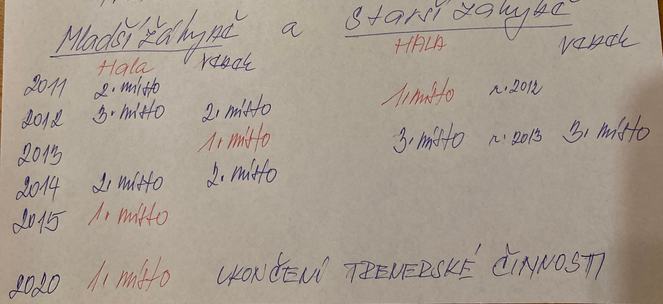 Mladší žákyně a Starší žákyně
Hala venek HALA venek
2011 2. místo 1. místo r. 2012
2012 3. místo 2. místo
2013 1. místo 3. místo r. 2013 3. místo
2014 2. místo 2. místo
2015 1. místo
2020 1. místo UKONČENÍ TRENERSKÉ ČINNOSTI